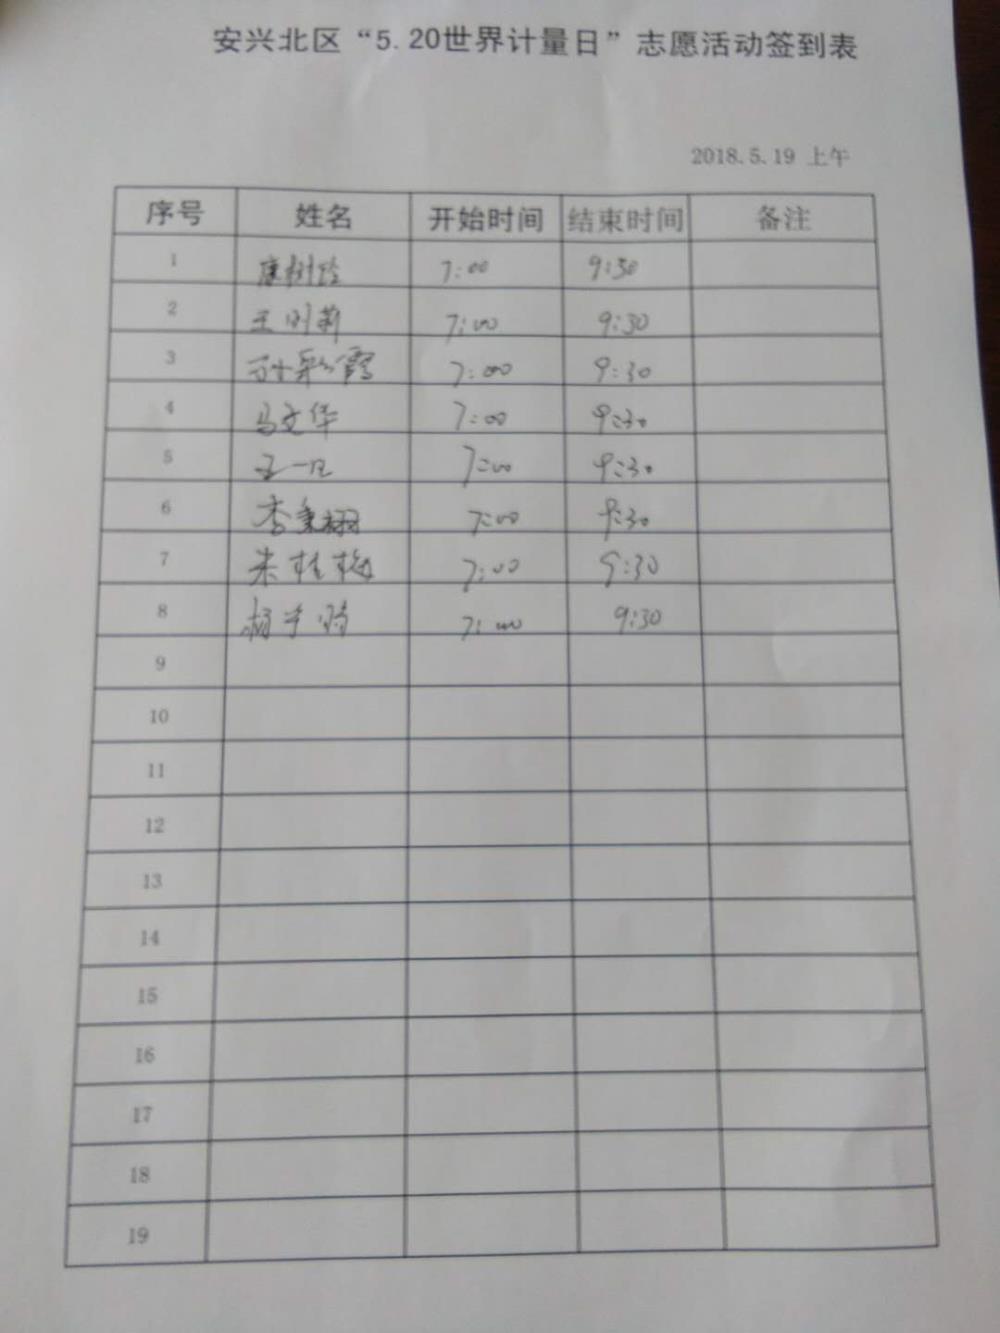 安兴北区“5.20世界计量日”志愿活动签到表
2018.5.19 上午
序号 姓名 开始时间 结束时间 备注
1 7:00 9:30
2 7:00 9:30
3 孙彩霞 7:00 9:30
4 马文华 7:00 9:30
5 王一凡 7:00 9:30
6 李秉栩 7:00 9:30
7 朱桂梅 7:00 9:30
8 7:00 9:30
9
10
11
12
13
14
15
16
17
18
19